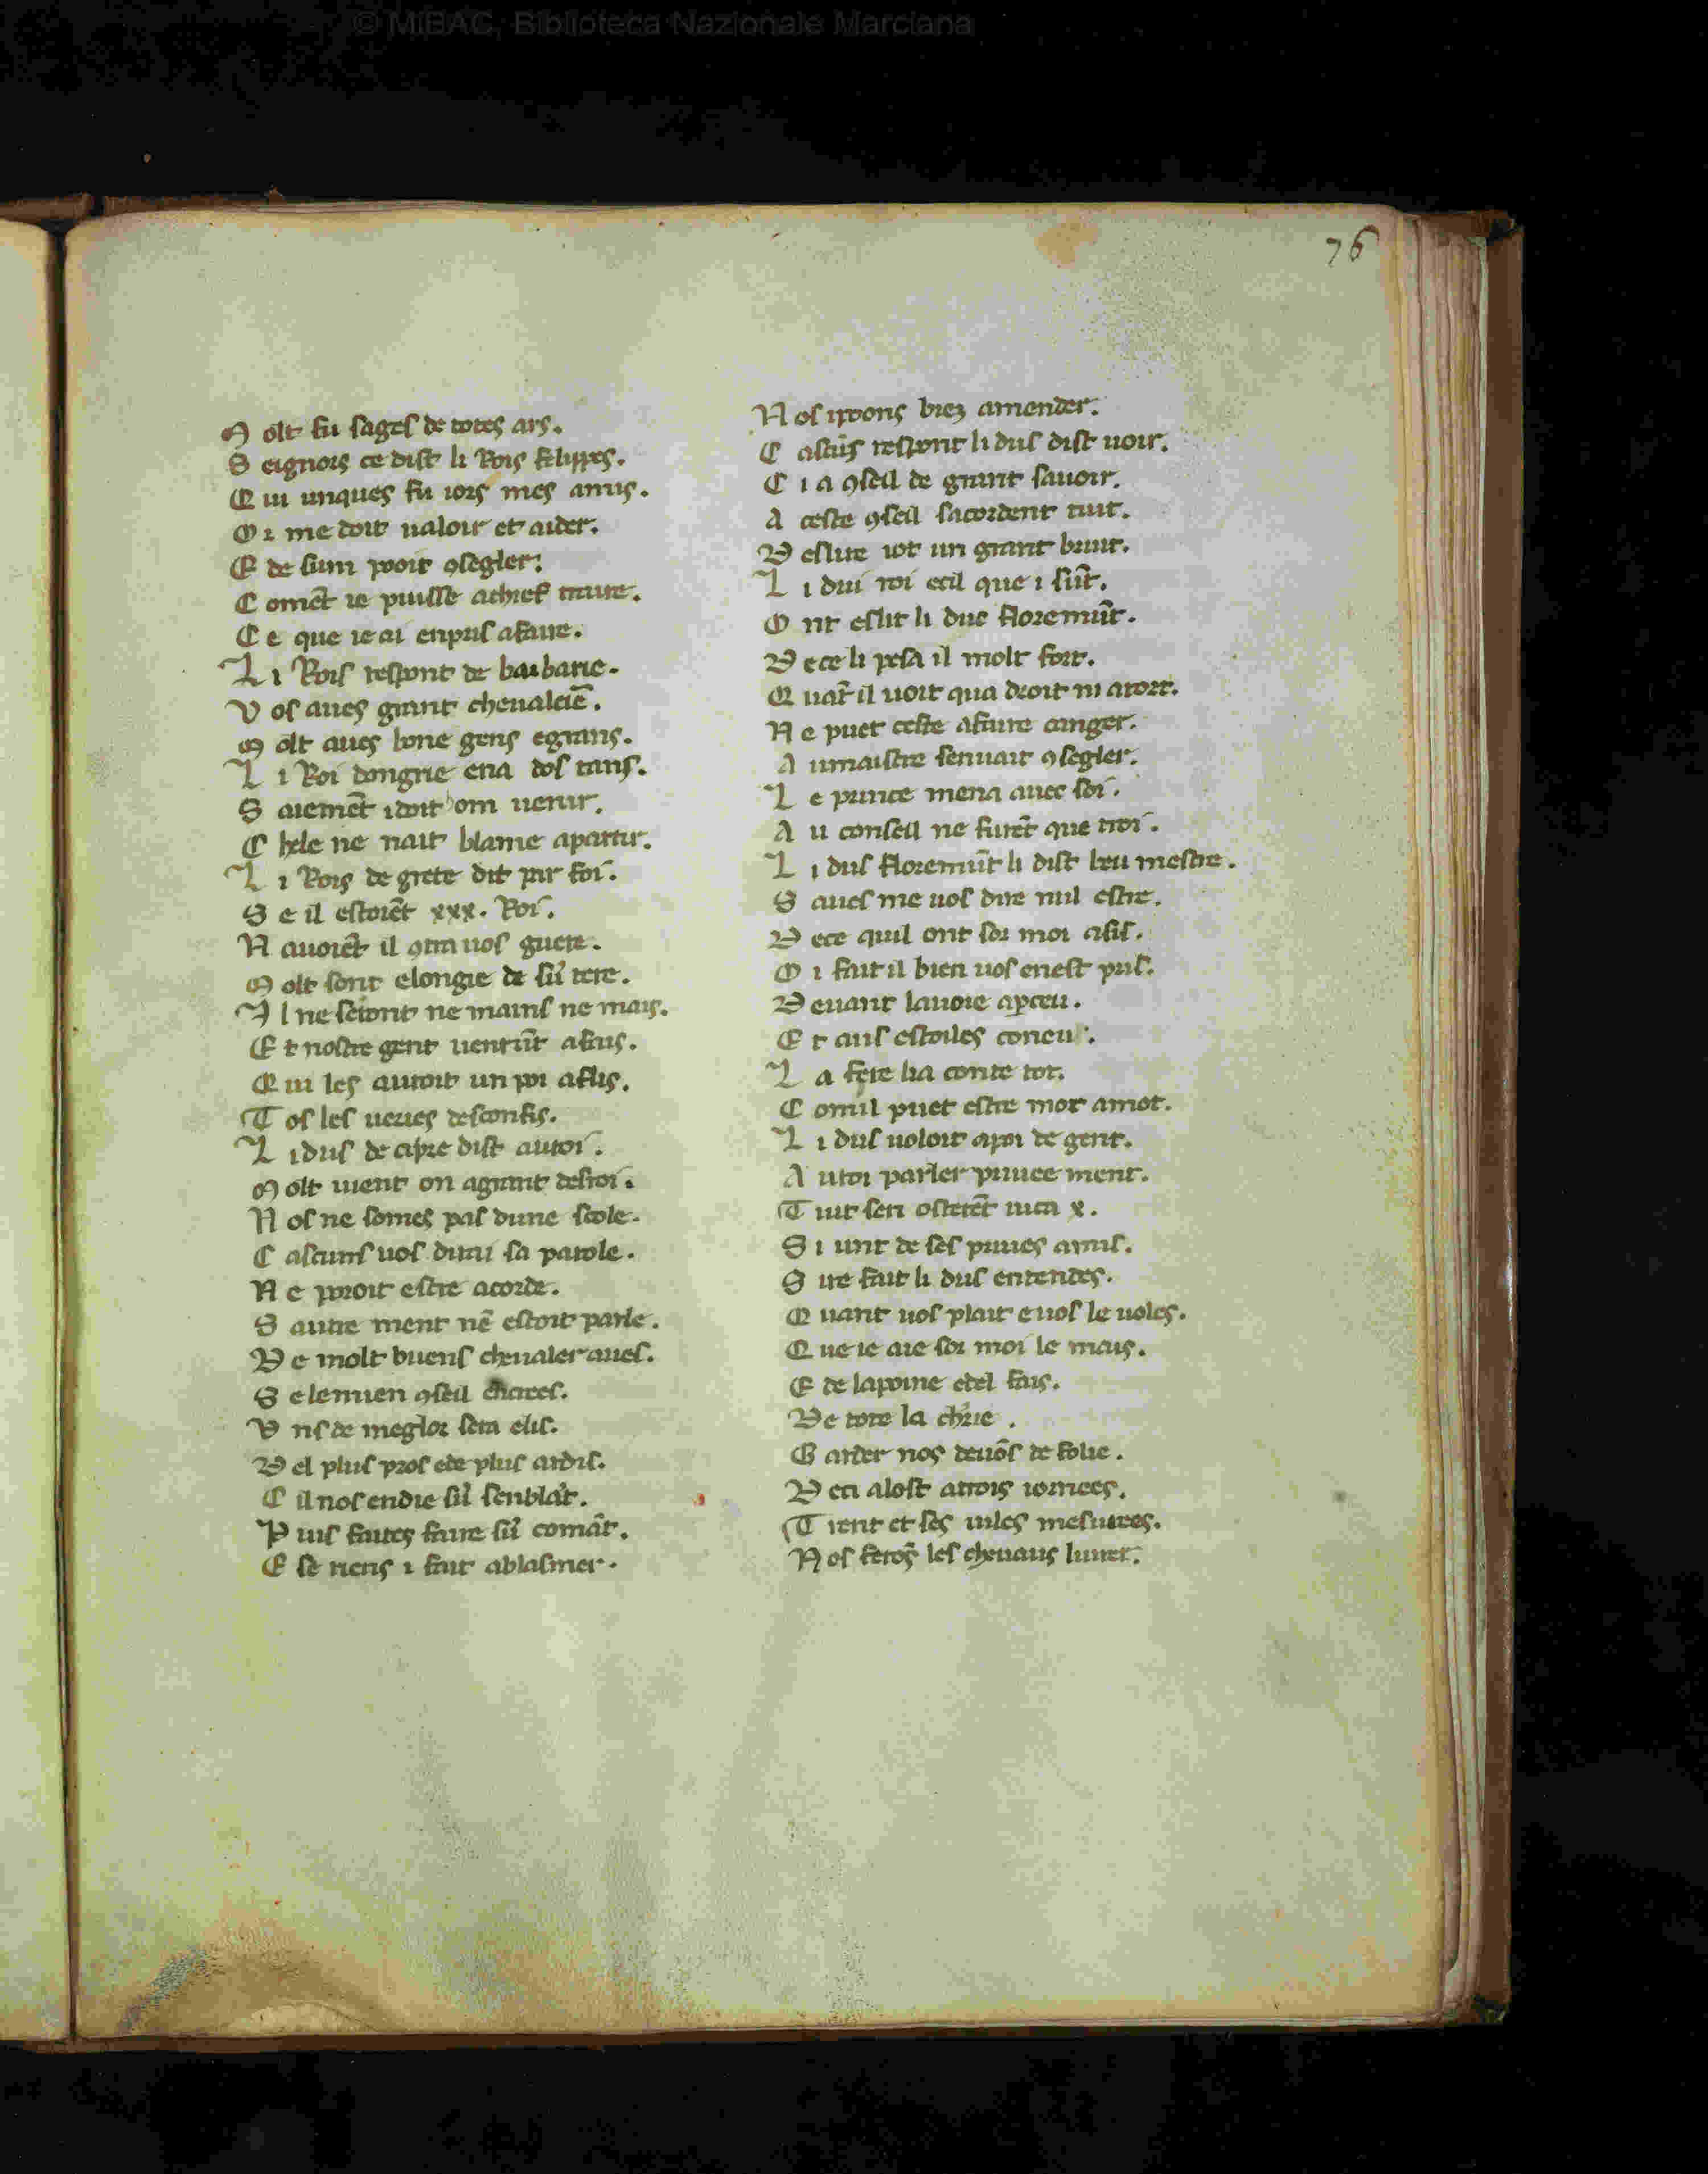 © MiBAC, Biblioteca Nazionale Marciana
76
M olt fu sages de totes ars.
S eignors ce dist li Rois felippes.
Q ui unques fu iors mes amis.
O r me doit ualoir et aider.
E de sum pooit ꝯsegler.
C omẽt ie puisse achief traire.
C e que ie ai enpris afaire.
L i Rois respont de barbarie.
V os aues grant cheualeiẽ.
M olt aues bone gens egrans.
L i Roi dongrie ena dos tans.
S aiemẽt idoit om uenir.
C hele ne nait blame apartir.
L i Rois de grete dit par foi.
S e il estoiẽt xxx. Roi.
N auoiẽt il ꝯtra uos guere.
M olt sont elongie de sũ tere.
I l ne seront ne mains ne mais.
E t nostre gent uenrũt afais.
Q ui les auroit un poi afflis.
T os les ueries desconfis.
L i dus de cipre dist autoi.
M olt uient on agrant desroi.
N os ne somes pas dune scole.
C ascuns uos dirai sa parole.
N e poroit estre acorde.
S autre ment nẽ estoit parle.
D e molt buens cheualer aues.
S e le mien ꝯseil
V ns de meglor sera elis.
D el plus pros ede plus ardis.
C il nos endie sũ senblãt.
P uis faites faire sũ comãt.
E se riens i fait ablasmer.
N os iporons biez amender.
C ascũs respont li dus dist uoir.
C i a ꝯseil de grant sauoir.
A ceste ꝯseil sacordent tuit.
D eslire iot un grant bruit.
L i dui roi ecil que i sũt.
O nt eslit li duc floremũt.
D ece li pesa il molt fort.
Q uãt il uoit qua droit ni atort.
N e puet ceste afaire canger.
A umaistre senuait ꝯsegler.
L e prince mena auec soi.
A u conseil ne furẽt que troi.
L i dus floremũt li dist beu mestre.
S aues me uos dire nul estre.
D ece quil ont sor moi asis.
O i fait il bien uos enest pris.
D euant lauoie apceu.
E t aus estoiles coneu.
L a fere lia conte tot.
C omil puet estre mot amot.
L i dus uoloit apoi de gent.
A utoi parler priuee ment.
T uit sen osterẽt iuca x.
S i unt de ses priues amis.
S ire fait li dus entendes.
Q uant uos plait e uos le uoles.
Q ue ie aie sor moi le mais.
E de lapoine edel fais.
D e tote la chr̃ie.
G arder nos deuõs de folie.
D eci alost atrois iornees.
T ient et ses uiles mesurees.
N os ferõs les cheuaus liurer.